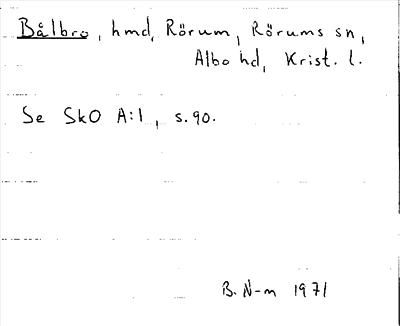 Bålbro, hmd, Rörum, Rörums sn,
Albo hd, Krist. l.
Se SkO A:1, s.90.
B. N-m 1971